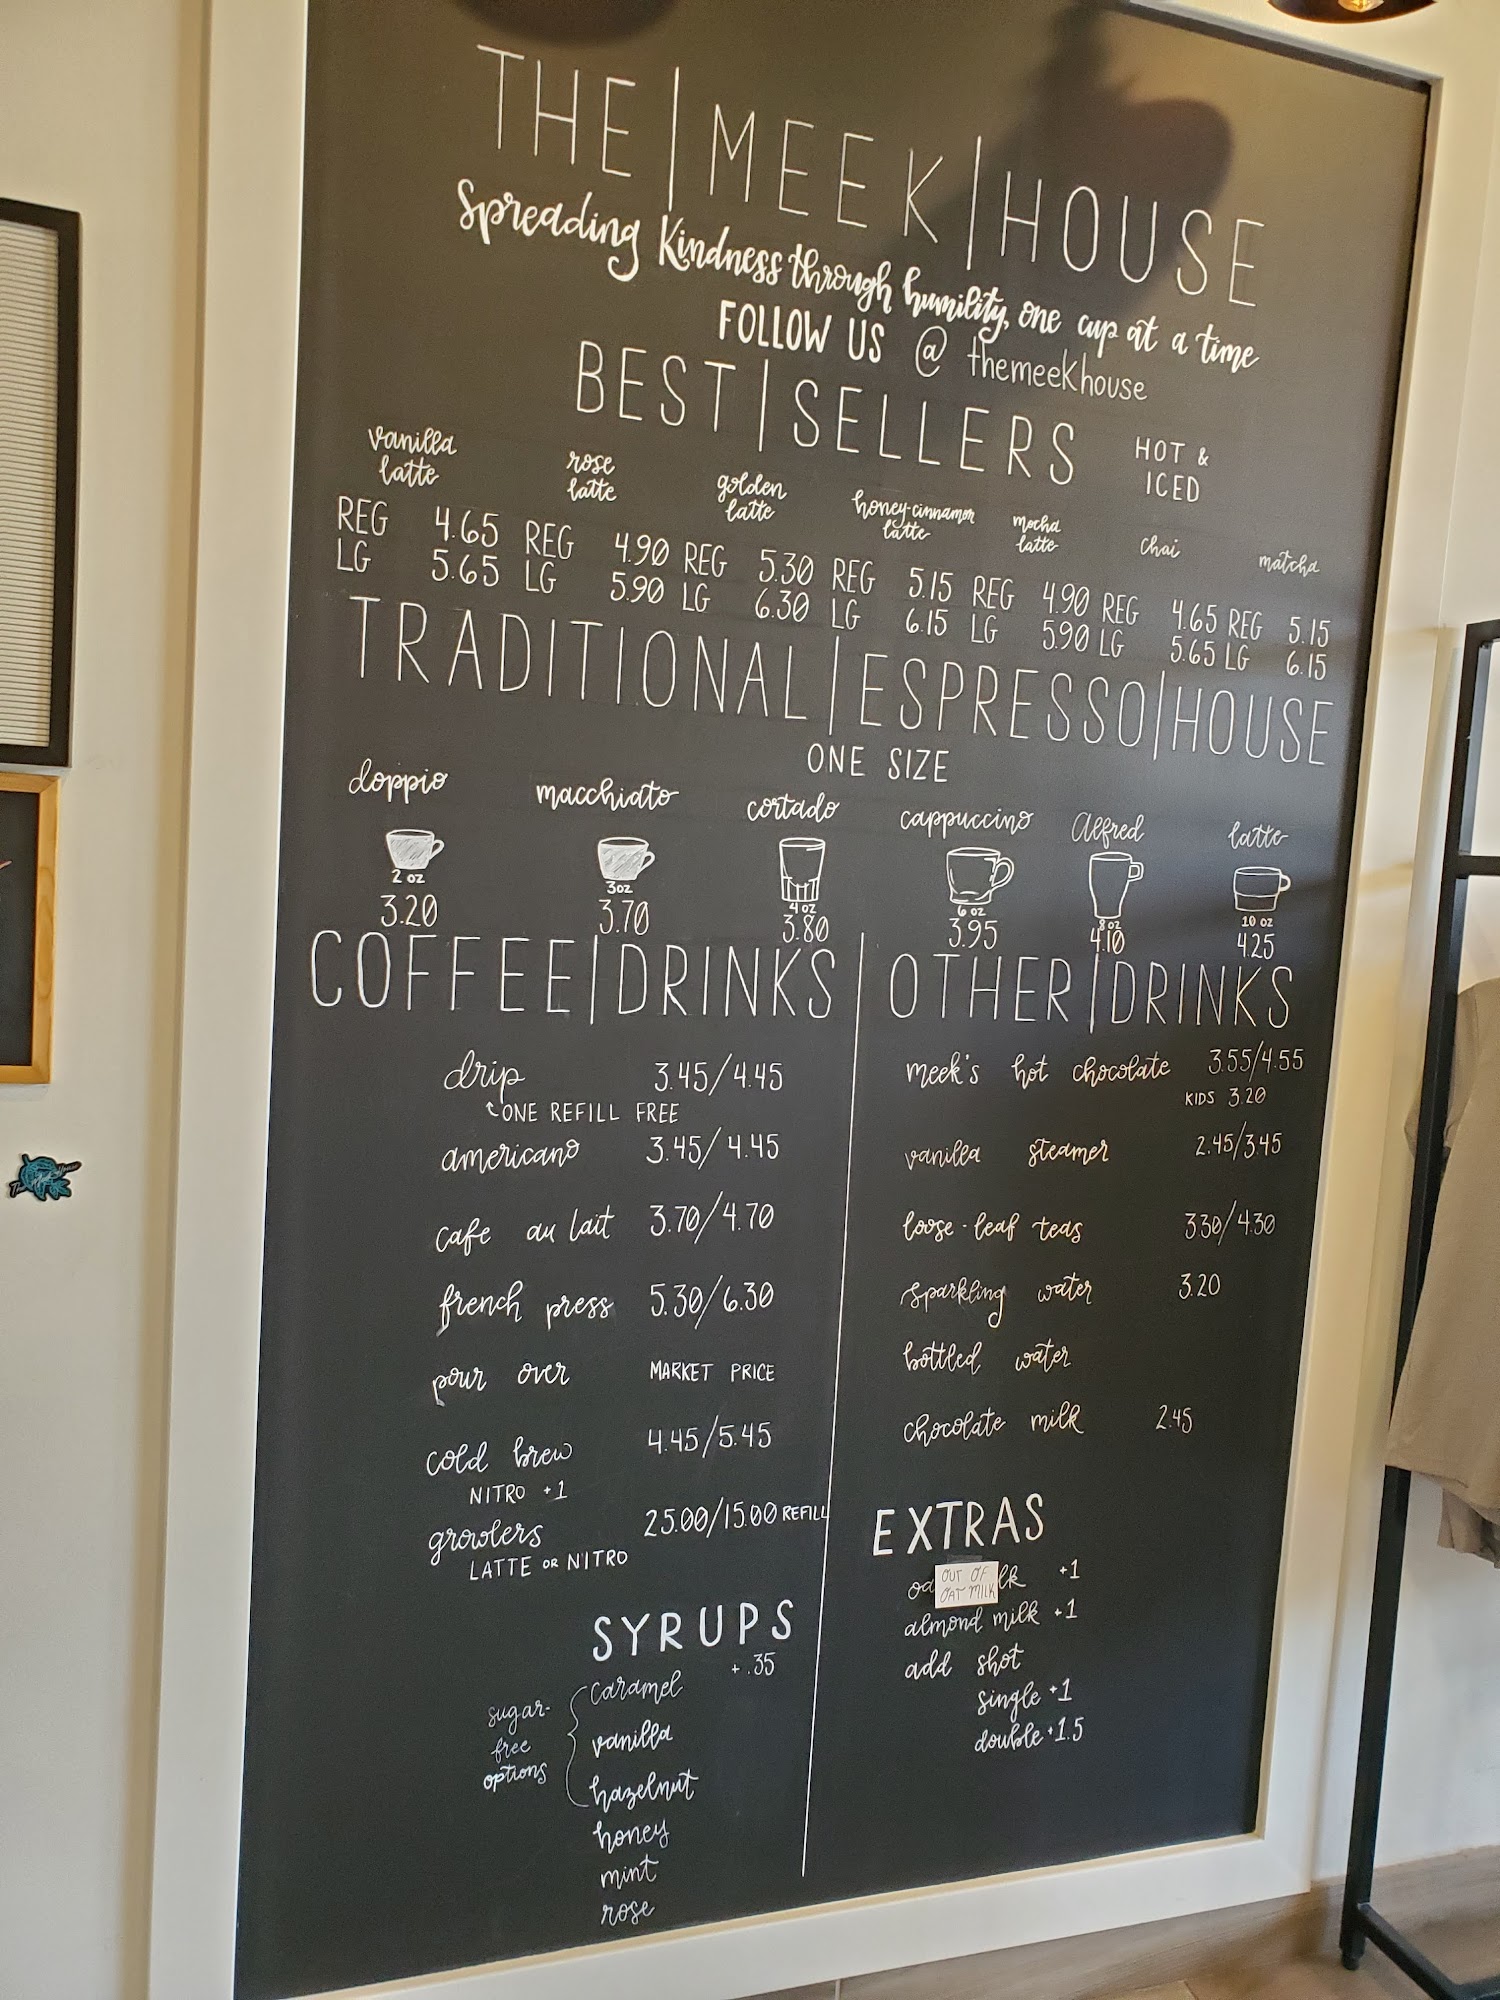 THE|MEEK|HOUSE
Spreading Kindness through humility, one cup at a time
FOLLOW US @ themeekhouse
BEST|SELLERS
HOT &
ICED
vanilla
latte
REG 4.65
LG 5.65
rose
latte
REG 4.90
LG 5.90
golden
latte
REG 5.30
LG 6.30
honey-cinnamon
latte
REG 5.15
LG 6.15
mocha
latte
REG 4.90
LG 5.90
chai
REG 4.65
LG 5.65
matcha
REG 5.15
LG 6.15
TRADITIONAL|ESPRESSO|HOUSE
ONE SIZE
doppio
2 oz
3.20
macchiato
3oz
3.70
cortado
4 oz
3.80
cappuccino
6 oz
3.95
Alfred
8 oz
4.10
latte
10 oz
4.25
COFFEE|DRINKS
drip 3.45/4.45
ONE REFILL FREE
americano 3.45/4.45
cafe au lait 3.70/4.70
french press 5.30/6.30
pour over MARKET PRICE
cold brew 4.45/5.45
NITRO +1
growlers 25.00/15.00 REFILL
LATTE OR NITRO
SYRUPS
+.35
sugar-
free
options
caramel
vanilla
hazelnut
honey
mint
rose
OTHER|DRINKS
meek's hot chocolate 3.55/4.55
KIDS 3.20
vanilla steamer 2.45/3.45
loose-leaf teas 3.30/4.30
sparkling water 3.20
bottled water
chocolate milk 2.45
EXTRAS
OUT OF
OAT MILK
+1
almond milk +1
add shot
single +1
double +1.5